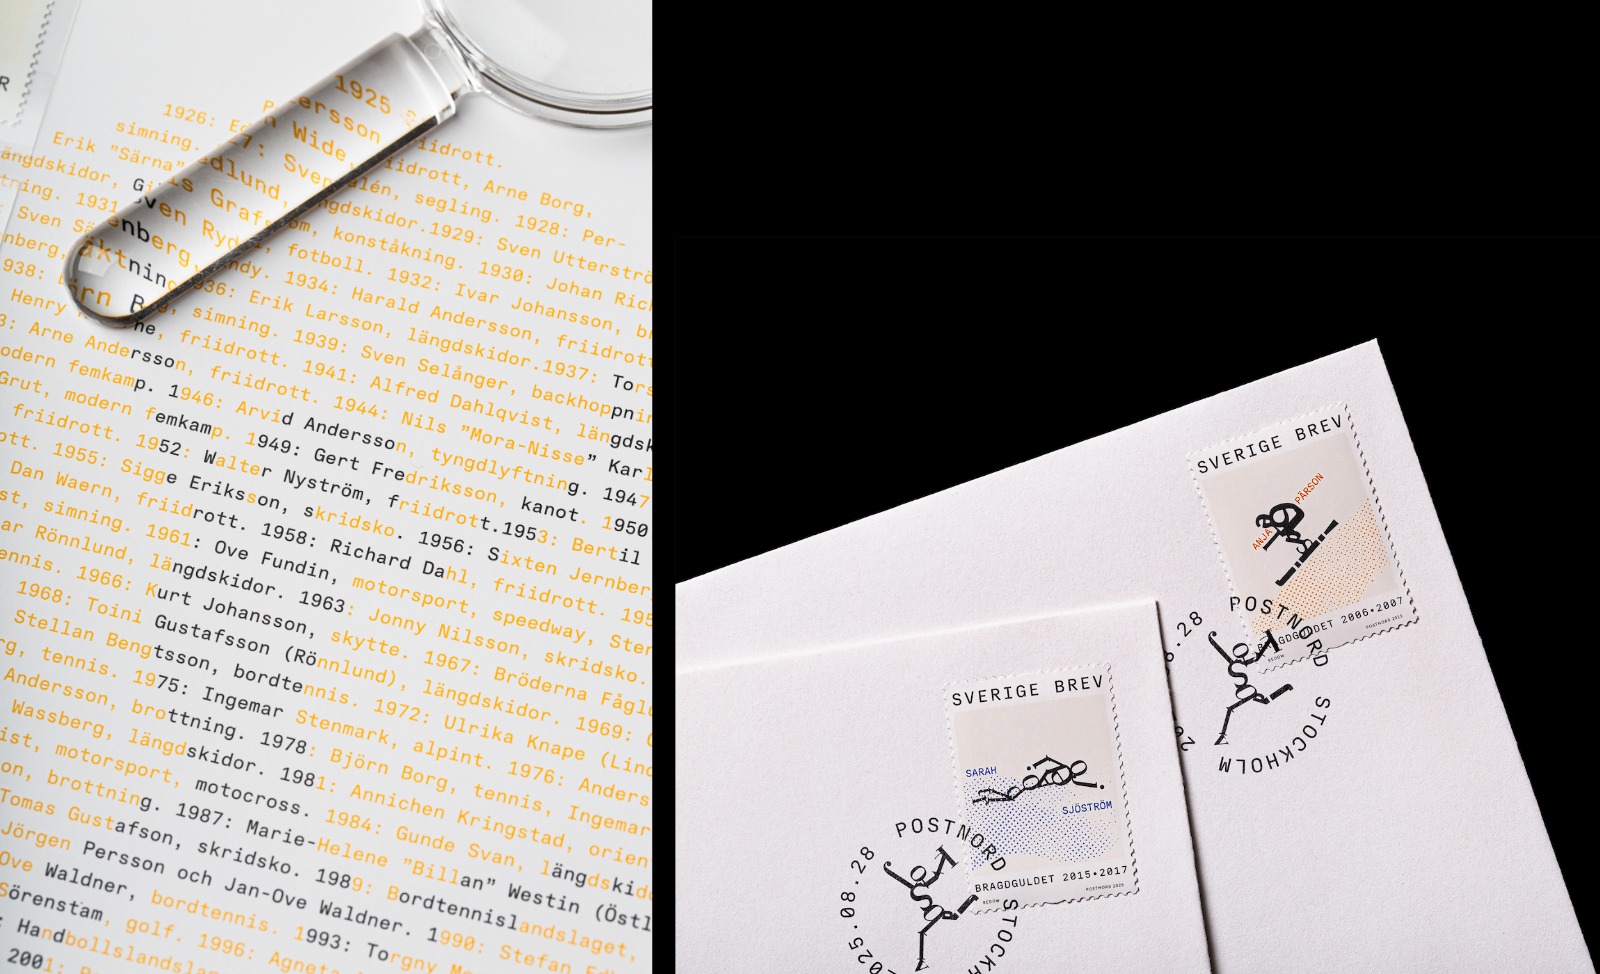 1925
Petersson friidrott.
1926: Edvin Wide, friidrott, Arne Borg,
simning. 1927: Sven Salén, segling. 1928: Per-
Erik "Särna" Hedlund, längdskidor.1929: Sven Utterströ
ängdskidor, Gillis Grafström, konståkning. 1930: Johan Rich
tning. 1931: Sven Rydell, fotboll. 1932: Ivar Johansson, br
Sven Sa enberg, bandy. 1934: Harald Andersson, friidrott
nberg, fäktning. 1936: Erik Larsson, längdskidor.1937: Tors
938: Björn Borg, simning. 1939: Sven Selånger, backhoppnin
Henry ne, friidrott. 1941: Alfred Dahlqvist, längdsk
3: Arne Andersson, friidrott. 1944: Nils ”Mora-Nisse” Karl
odern femkamp. 1946: Arvid Andersson, tyngdlyftning. 1947
Grut, modern femkamp. 1949: Gert Fredriksson, kanot. 1950
friidrott. 1952: Walter Nyström, friidrott.1953: Bertil
ott. 1955: Sigge Eriksson, skridsko. 1956: Sixten Jernber
Dan Waern, friidrott. 1958: Richard Dahl, friidrott. 195
st, simning. 1961: Ove Fundin, motorsport, speedway, Sten
ar Rönnlund, längdskidor. 1963: Jonny Nilsson, skridsko.
ennis. 1966: Kurt Johansson, skytte. 1967: Bröderna Fåglu
1968: Toini Gustafsson (Rönnlund), längdskidor. 1969:
Stellan Bengtsson, bordtennis. 1972: Ulrika Knape (Lind
rg, tennis. 1975: Ingemar Stenmark, alpint. 1976: Anders
Andersson, brottning. 1978: Björn Borg, tennis, Ingemar
Wassberg, längdskidor. 1981: Annichen Kringstad, orien
ist, motorsport, motocross. 1984: Gunde Svan, längdskido
on, brottning. 1987: Marie-Helene ”Billan” Westin (Östl
Tomas Gustafson, skridsko. 1989: Bordtennislandslaget,
Jörgen Persson och Jan-Ove Waldner. 1990: Stefan Ed
Ove Waldner, bordtennis. 1993: Torgny Mo
Sörenstam, golf. 1996: Agneta
: Handbollslandslag
2001:
R
SVERIGE BREV
ANJA
PÄRSON
BRAGDGULDET 2006•2007
POSTNORD 2025
BEDOW
POSTNORD
STOCKHOLM
8.28
SVERIGE BREV
SARAH
SJÖSTRÖM
BRAGDGULDET 2015•2017
BEDOW
POSTNORD 2025
POSTNORD
STOCKH
2025.08.28